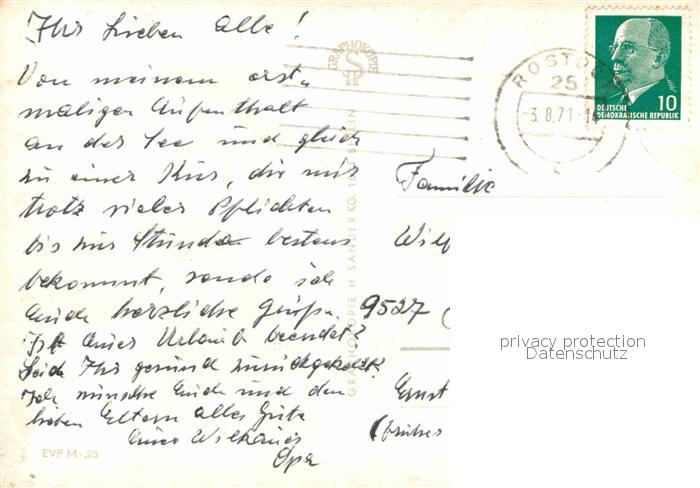 Ihr Lieben Alle!
Von meinem erst-
maligen Aufenthalt
an der See und gleich
zu einer Kur, die mir
trotz vieler Pflichten
bis zur Stunde bestens
bekommt, sende ich
Euch herzliche Grüße.
Ist Euer Urlaub beendet?
Seid Ihr gesund zurückgekehrt?
Ich wünsche Euch und den
lieben Eltern alles Gute
Euer
Opa
EVP M -,25
GRAPHOKOPIE
GRAPHOKOPIE H. SANDER KG.
ROSTO
25
-3.8.71
10
DEUTSCHE
DEMOKRATISCHE REPUBLIK
Familie
Wilf
9527 (
Ernst
(früher
privacy protection
Datenschutz